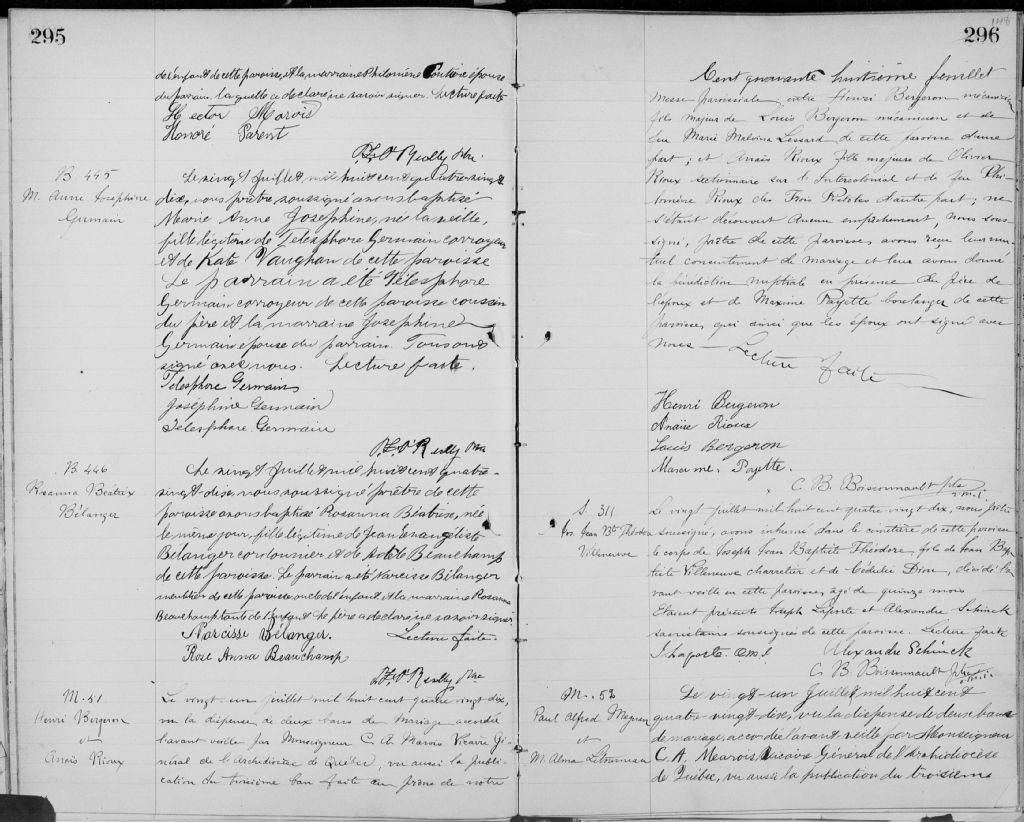 295
de l'enfant de cette paroisse, et la marraine Philomène épouse
du parrain laquelle a déclaré ne savoir signer. Lecture faite
Hector Marois
Honoré Parent
P. F. O'Reilly Ptre
B 445
M. Anne Joséphine
Germain
Le vingt Juillet mil huit cent quatre vingt
dix, nous prêtre soussigné avons baptisé
Marie Anne Josephine, née la veille,
fille légitime de Telesphore Germain corroyeur
et de Kate Vaughan de cette paroisse
Le parrain a été Télésphore
Germain corroyeur de cette paroisse cousin
du père et la marraine Josephine
Germain épouse du parrain. Tous ont
signé avec nous. Lecture faite.
Telesphore Germain
Joséphine Germain
Telesphore Germain
P. F. O'Reilly Ptre
B 446
Rosanna Béatrix
Bélanger
Le vingt Juillet mil huit cent quatre-
vingt-dix, nous soussigné prêtre de cette
paroisse avons baptisé Rosanna Béatrix, née
le même jour, fille légitime de Jean Evangéliste
Bélanger cordonnier et de Beauchamp
de cette paroisse. Le parrain a été Narcisse Bélanger
de cette paroisse, oncle de l'enfant et la marraine Rosanna
Beauchamp tante de l'enfant. Le père a déclaré ne savoir signer
Narcisse Bélanger. Lecture faite.
Rose Anna Beauchamp
P. F. O'Reilly Ptre
M. 51
Henri Bergeron
et
Anaïs Rioux
Le vingt-un juillet mil huit cent quatre vingt dix,
vu la dispense de deux bans de mariage accordée
l'avant veille par Monseigneur C. A. Marois Vicaire Gé-
néral de l'Archidiocèse de Québec, vu aussi la publi-
cation du troisième ban faite au prône de notre
148
296
Cent quarante huitième feuillet
Messe paroissiale, entre Henri Bergeron mécanicien
fils majeur de Louis Bergeron mécanicien et de
feu Marie Malvina Lessard de cette paroisse d'une
part; et Anaïs Rioux fille majeure de Olivier
Rioux sectionnaire sur l'Intercolonial et de feu Phi-
lomène Rioux des Trois Pistoles d'autre part; ne
s'étant découvert aucun empêchement, nous sous-
signé, prêtre de cette paroisse, avons reçu leur mu-
tuel consentement de mariage et leur avons donné
la bénédiction nuptiale en présence du père de
l'époux et de Maxime Payette boulanger de cette
paroisse, qui ainsi que les époux ont signé avec
nous — Lecture faite
Henri Bergeron
Anaïse Rioux
Louis Bergeron
Maxime Payette.
C. B. Boissonnault ptre
o.m.i.
S. 311
Jos. Jean Bte Théodore
Villeneuve
Le vingt juillet mil huit cent quatre vingt dix, nous prêtre
soussigné, avons inhumé dans le cimetière de cette paroisse
le corps de Joseph Jean Baptiste Théodore, fils de Jean Bap-
tiste Villeneuve charretier et de Cédulie Dion, décédé l'a-
vant veille en cette paroisse, âgé de quinze mois
Etaient présents Joseph Laporte et Alexandre Schinck
sacristains soussignés de cette paroisse. Lecture faite
J. Laporte. o.m.i Alexandre Schinck
C. B. Boissonnault ptre
o.m.i.
M. 52
Paul Alfred
et
M. Alma Létourneau
Le vingt-un Juillet mil huit cent
quatre-vingt-dix, vu la dispense de deux bans
de mariage, accordée l'avant veille par Monseigneur
C. A. Marois, Vicaire Général de l'Archidiocèse
de Québec, vu aussi la publication du troisième